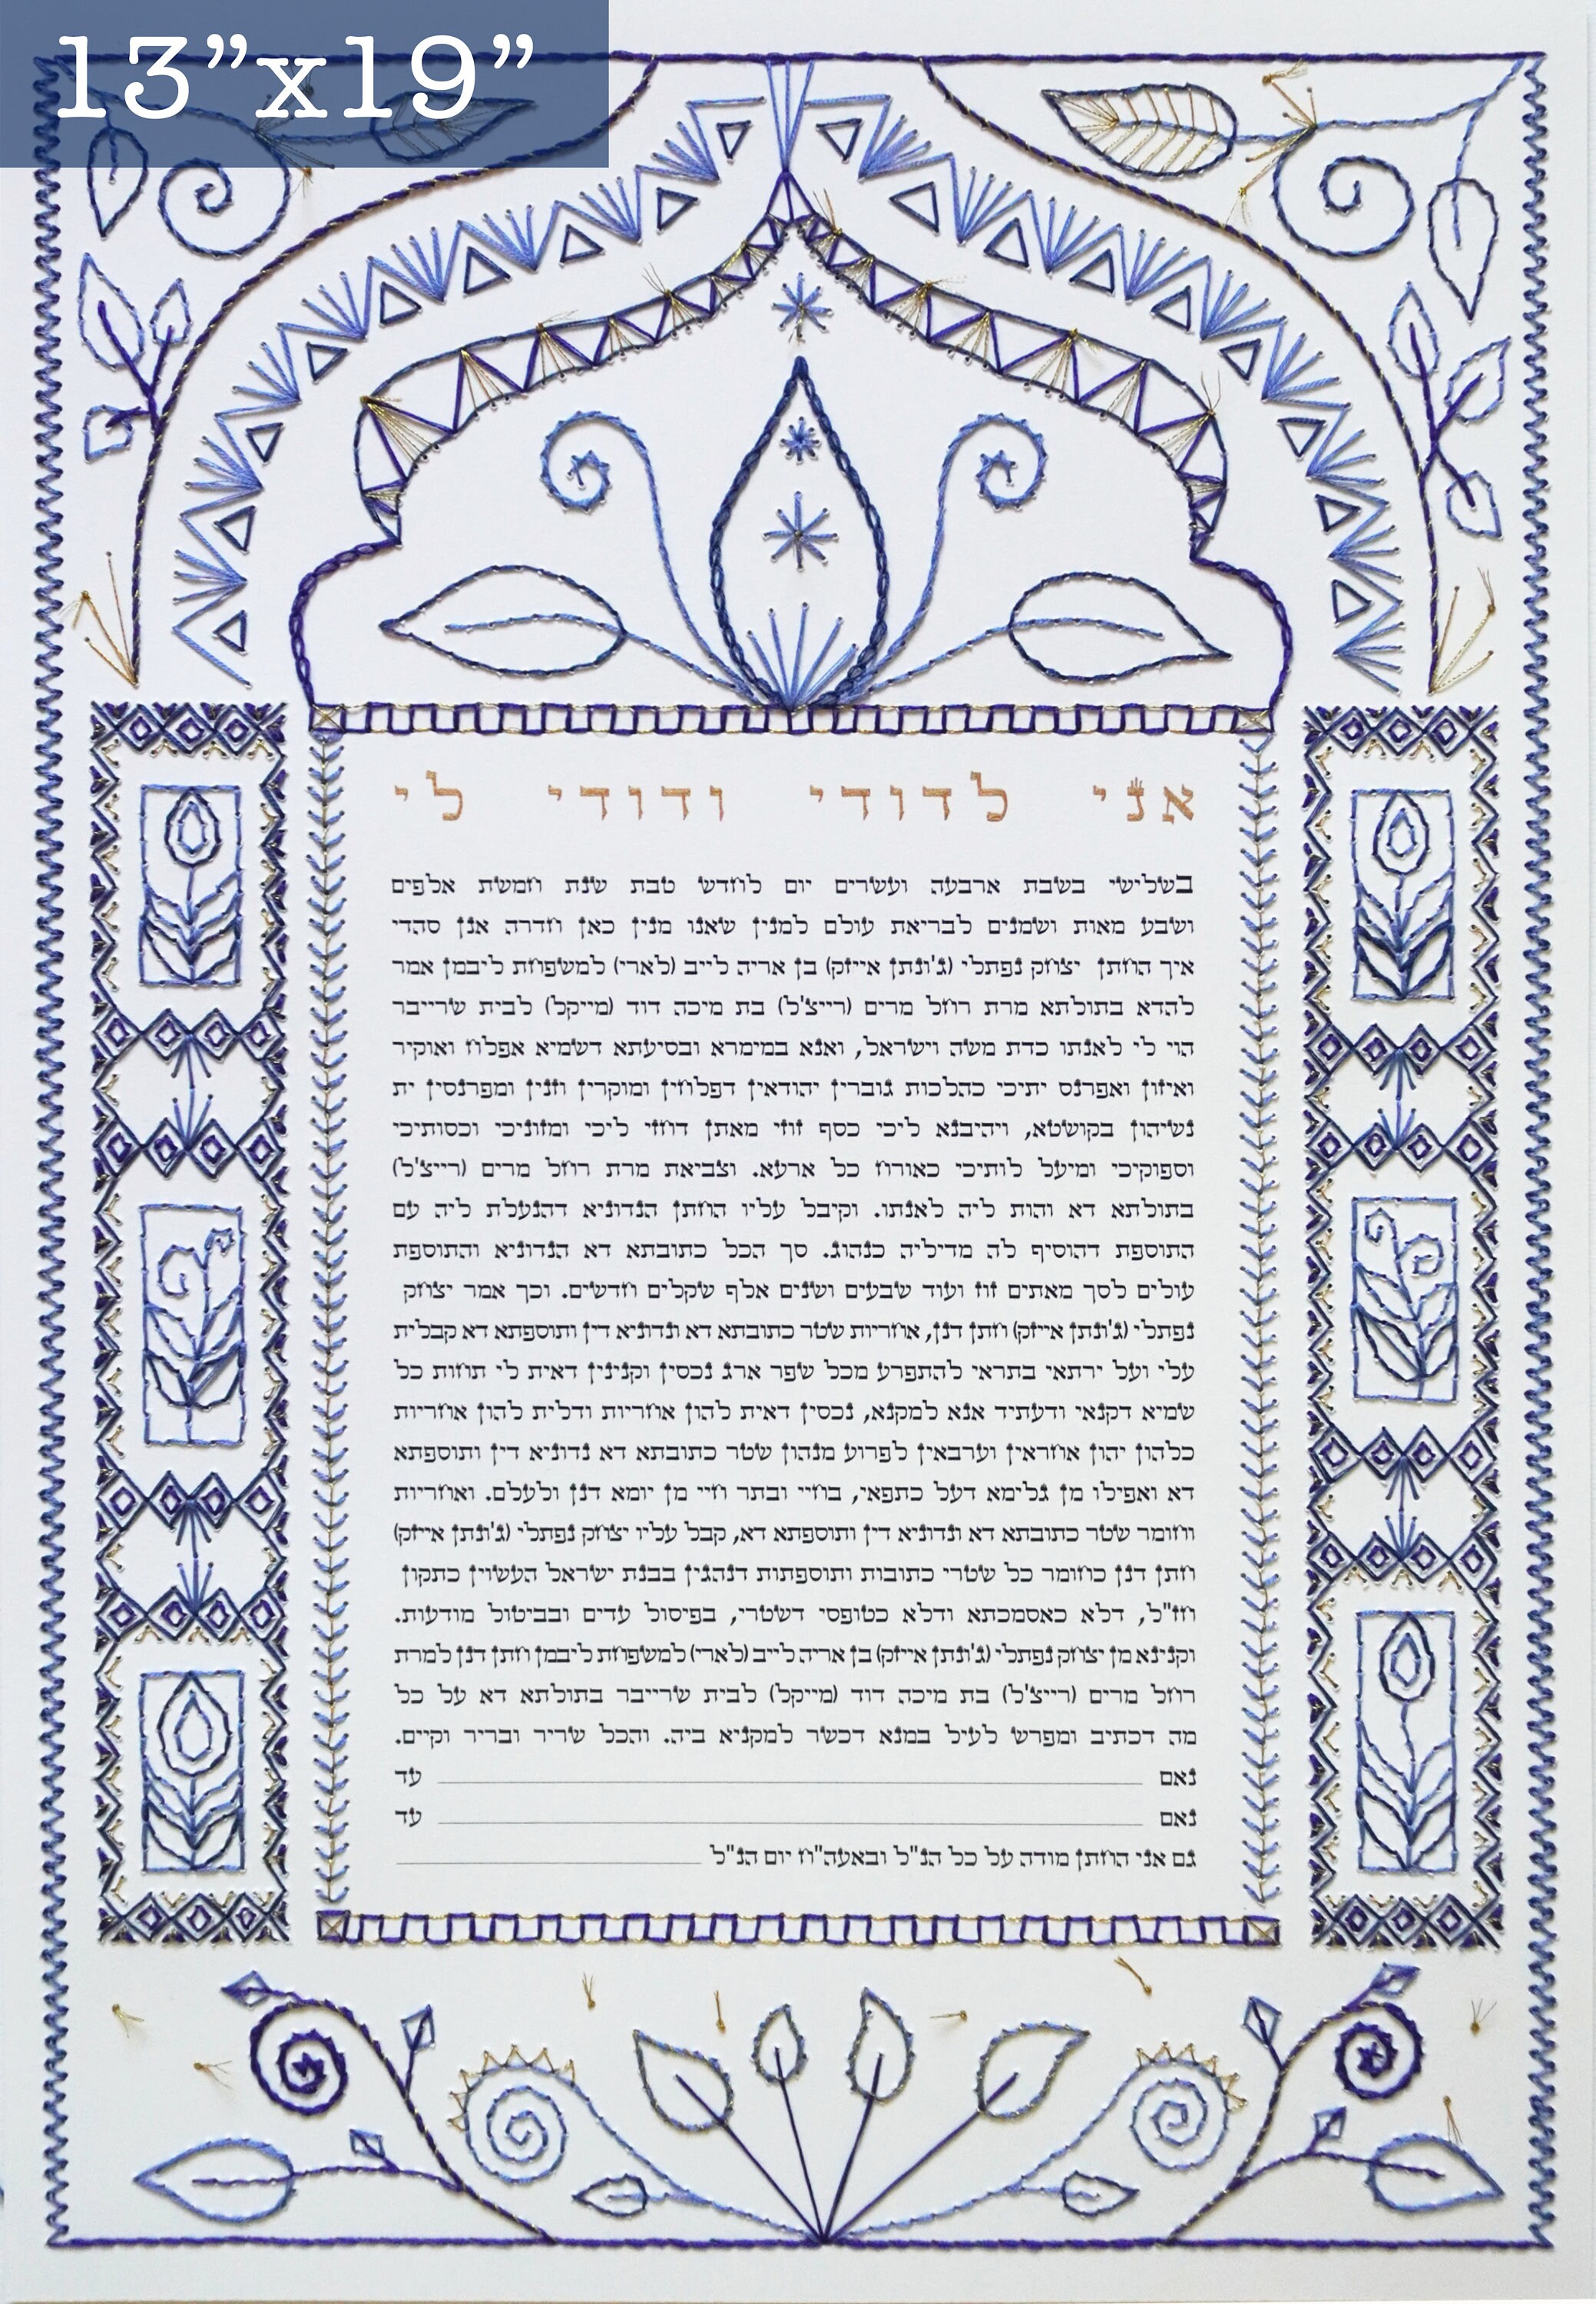 13”x19”
אני לדודי ודודי לי
בשלישי בשבת ארבעה ועשרים יום לחדש טבת שנת חמשת אלפים
ושבע מאות ושמנים לבריאת עולם למנין שאנו מנין כאן חדרה אנן סהדי
איך החתן יצחק נפתלי (ג'ונתן אייזק) בן אריה לייב (לארי) למשפחת ליבמן אמר
להדא בתולתא מרת רחל מרים (רייצ'ל) בת מיכה דוד (מייקל) לבית שרייבר
הוי לי לאנתו כדת משה וישראל, ואנא במימרא ובסיעתא דשמיא אפלח ואוקיר
ואיזון ואפרנס יתיכי כהלכות גוברין יהודאין דפלחין ומוקרין וזנין ומפרנסין ית
נשיהון בקושטא, ויהיבנא ליכי כסף זוזי מאתן דחזי ליכי ומזוניכי וכסותיכי
וספוקיכי ומיעל לותיכי כאורח כל ארעא. וצביאת מרת רחל מרים (רייצ'ל)
בתולתא דא והות ליה לאנתו. וקיבל עליו החתן הנדוניא דהנעלת ליה עם
התוספת דהוסיף לה מדיליה כנהוג. סך הכל כתובתא דא הנדוניא והתוספת
עולים לסך מאתים זוז ועוד שבעים ושנים אלף שקלים חדשים. וכך אמר יצחק
נפתלי (ג'ונתן אייזק) חתן דנן, אחריות שטר כתובתא דא ונדוניא דין ותוספתא דא קבלית
עלי ועל ירתאי בתראי להתפרע מכל שפר ארג נכסין וקנינין דאית לי תחות כל
שמיא דקנאי ודעתיד אנא למקנא, נכסין דאית להון אחריות ודלית להון אחריות
כלהון יהון אחראין וערבאין לפרוע מנהון שטר כתובתא דא נדוניא דין ותוספתא
דא ואפילו מן גלימא דעל כתפאי, בחיי ובתר חיי מן יומא דנן ולעלם. ואחריות
וחומר שטר כתובתא דא ונדוניא דין ותוספתא דא, קבל עליו יצחק נפתלי (ג'ונתן אייזק)
חתן דנן כחומר כל שטרי כתובות ותוספתות דנהגין בבנת ישראל העשוין כתקון
חז"ל, דלא כאסמכתא ודלא כטופסי דשטרי, בפיסול עדים ובביטול מודעות.
וקנינא מן יצחק נפתלי (ג'ונתן אייזק) בן אריה לייב (לארי) למשפחת ליבמן חתן דנן למרת
רחל מרים (רייצ'ל) בת מיכה דוד (מייקל) לבית שרייבר בתולתא דא על כל
מה דכתיב ומפרש לעיל במנא דכשר למקניא ביה. והכל שריר ובריר וקיים.
נאם עד
נאם עד
גם אני החתן מודה על כל הנ"ל ובאעה"ח יום הנ"ל